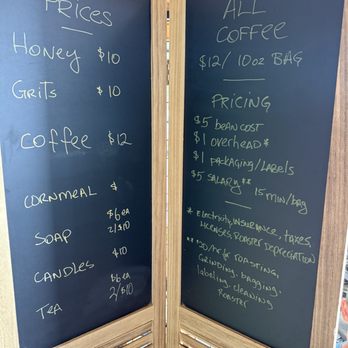 PRICES
HONEY $10
GRITS $10
COFFEE $12
CORNMEAL $
$6 ea
SOAP 2/$10
CANDLES $10
$6 ea
TEA 2/$10
ALL
COFFEE
$12/10oz BAG
PRICING
$5 BEAN COST
$1 overhead*
$1 PACKAGING/LABELS
$5 SALARY** 15 min/bag
* Electricity, INSURANCE, taxes,
LICENSES, ROASTER DEPRECIATION
** ROASTING,
GRINDING, bagging,
labeling, cleaning
ROASTER